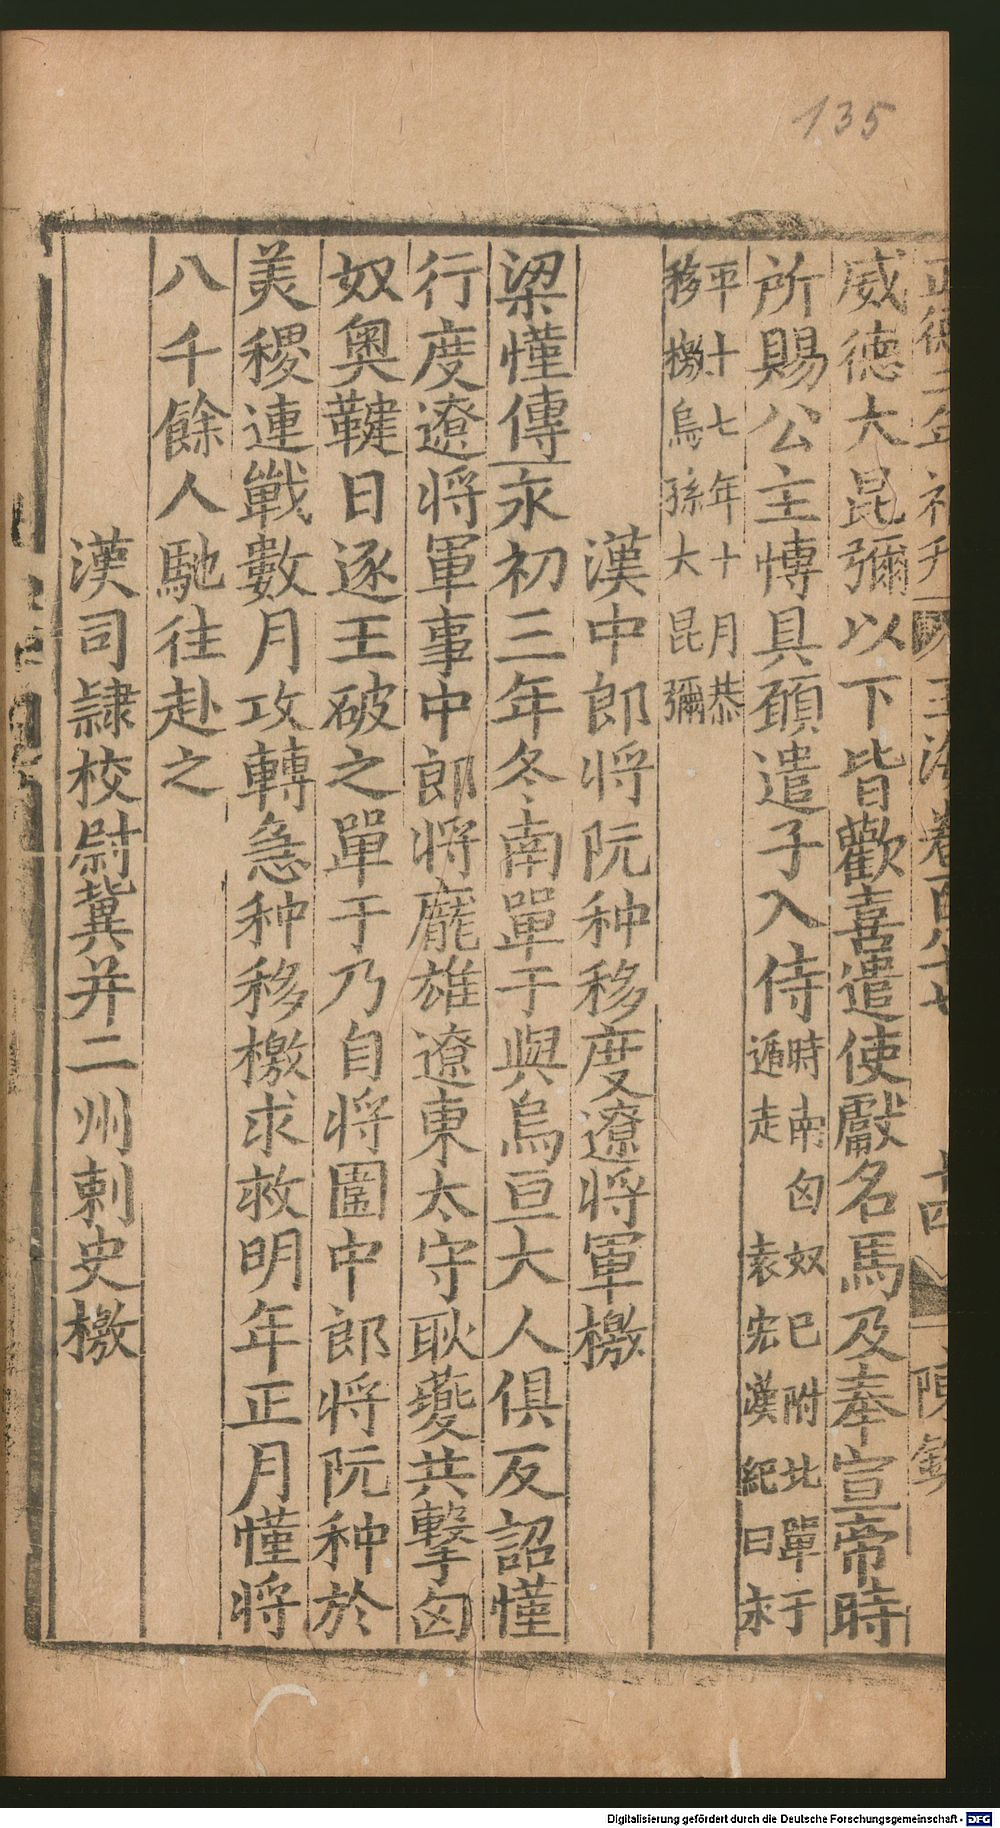 135
正德二年補刋 玉海卷百八十七 十四 陳欽
威德大昆彌以下皆歡喜遣使獻名馬及奉宣帝時
所賜公主愽具願遣子入侍時南匈奴巳附北單于
遁走 袁宏漢紀曰永
平十七年十月恭
移檄烏孫大昆彌
漢中郎将阮种移度遼将軍檄
梁慬傳永初三年冬南單于與烏亘大人俱反詔慬
行度遼将軍事中郎将龐雄遼東太守耿夔共擊匈
奴奥鞬日逐王破之單于乃自将圍中郎将阮种於
美稷連戰數月攻轉急种移檄求救明年正月慬将
八千餘人馳往赴之
漢司隷校尉冀并二州刺史檄
Digitalisierung gefördert durch die Deutsche Forschungsgemeinschaft - DFG